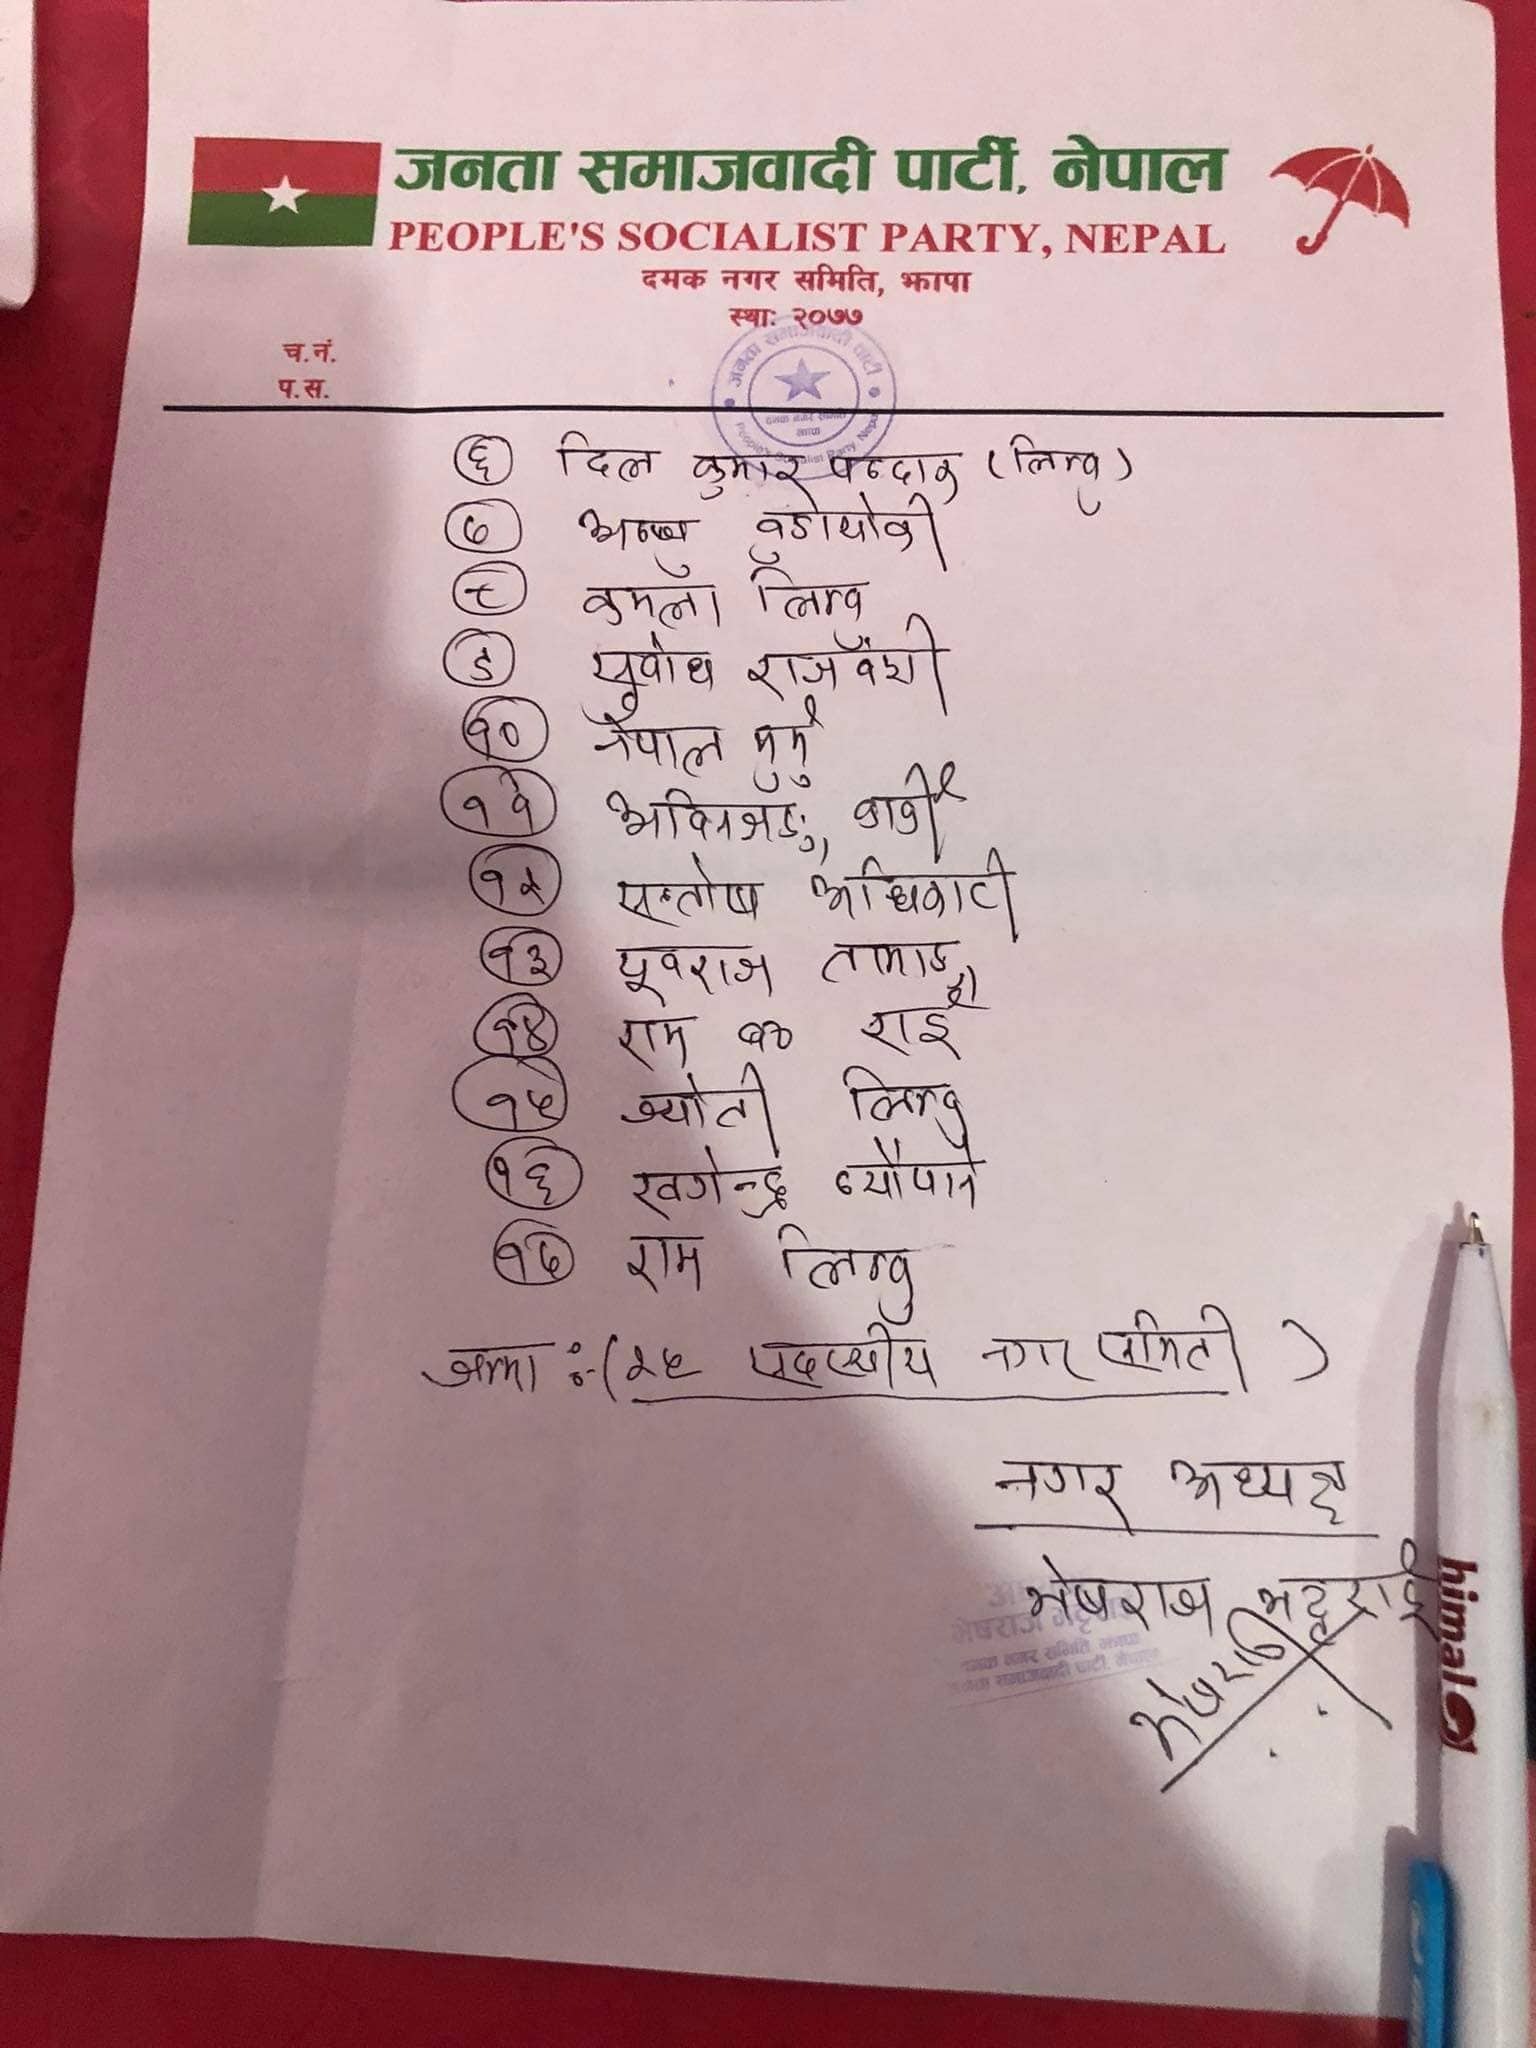 जनता समाजवादी पार्टी, नेपाल
PEOPLE'S SOCIALIST PARTY, NEPAL
दमक नगर समिति, झापा
स्था: २०७७
च.नं.
प.स.
जनता समाजवादी पार्टी
दमक नगर समिति
झापा
People's Socialist Party, Nepal
६ दिल कुमार (लिम्बु)
७
८ कमला लिम्बु
९ सुवोध राजवंशी
१० नेपाल मुर्मु
११ कार्की
१२ सन्तोष अधिकारी
१३ युवराज तामाङ
१४ राम ब० राई
१५ ज्योती लिम्बु
१६ खगेन्द्र न्यौपाने
१७ राम लिम्बु
जम्मा :-(२५ सदस्यीय नगर समिती)
नगर अध्यक्ष
भेषराज भट्टराई
भेषराज
दमक नगर समिति, झापा
जनता समाजवादी पार्टी, नेपाल
himal